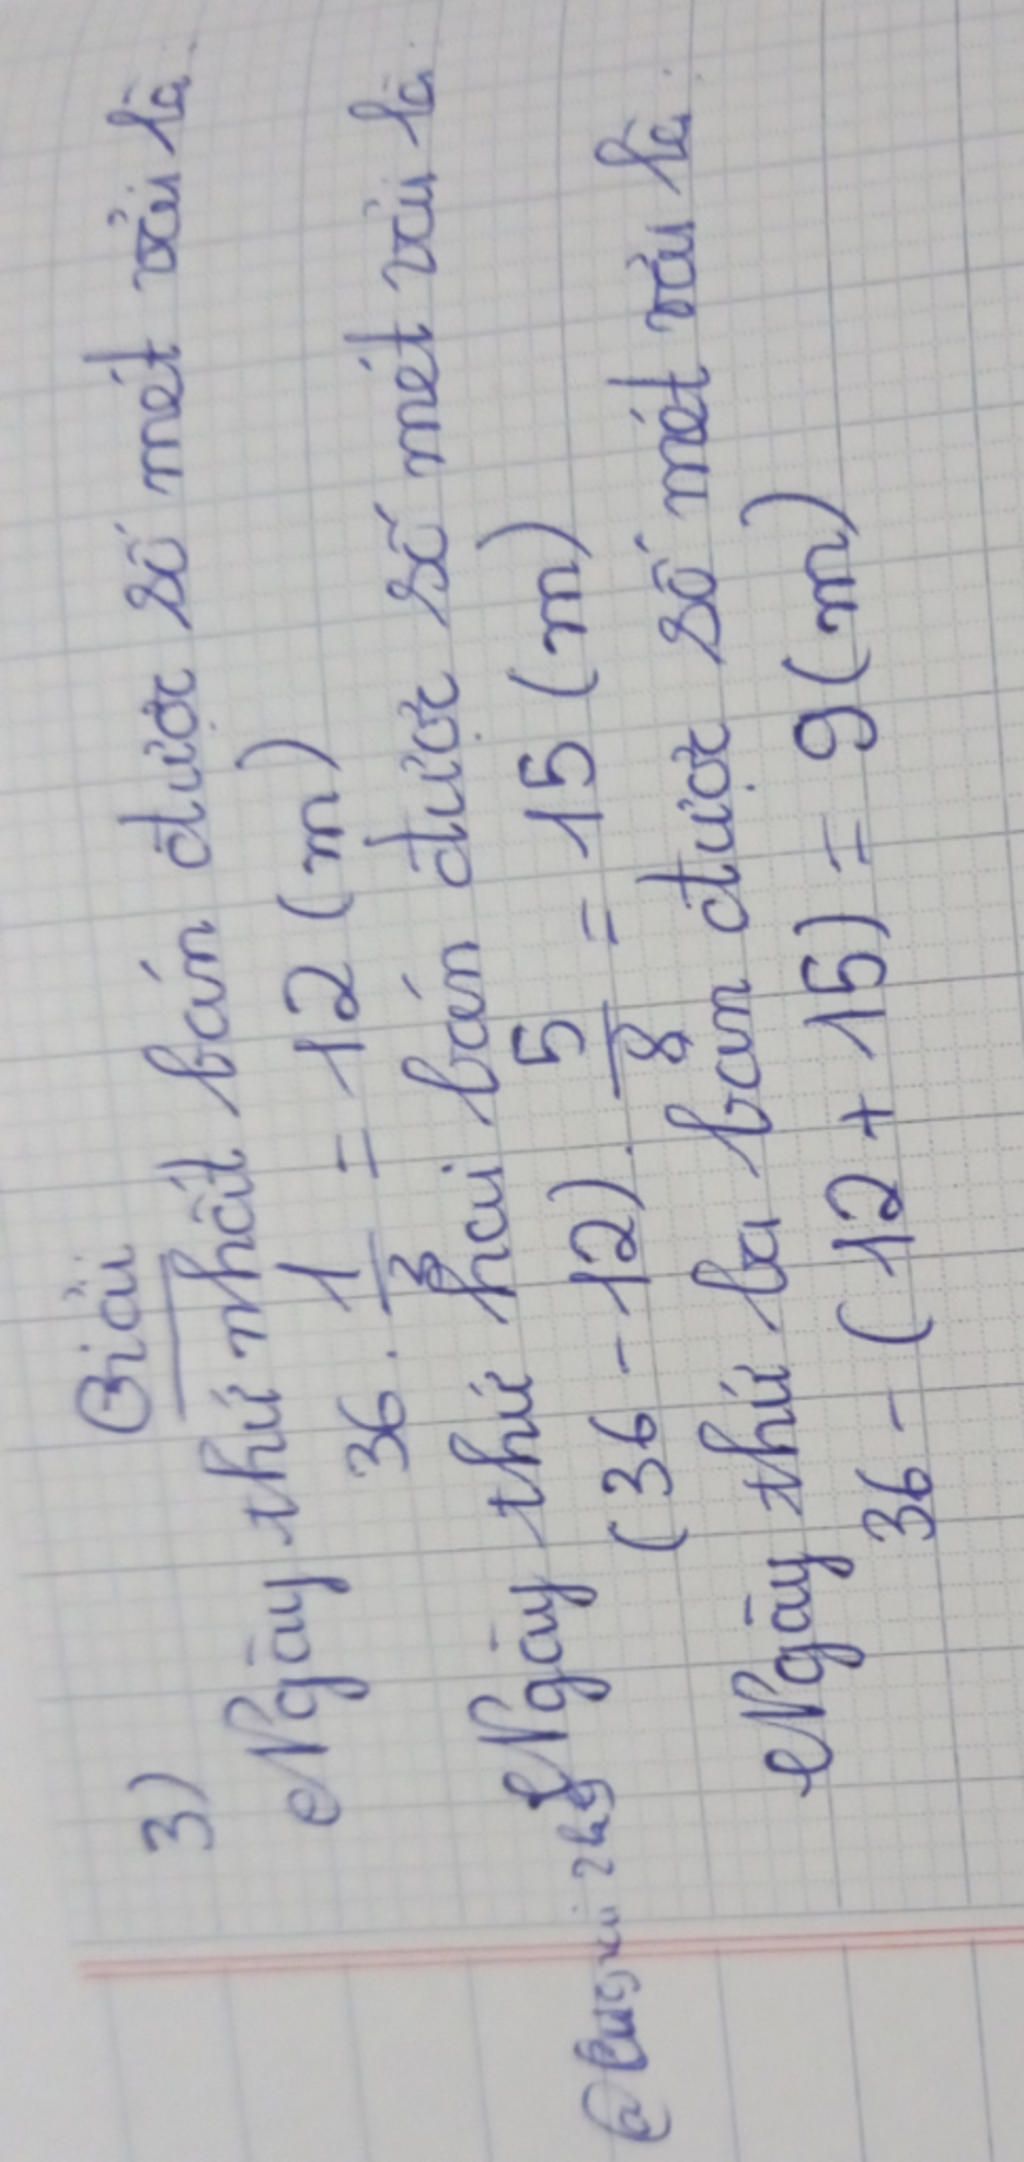 3) Giải
Ngày thứ nhất bán được số mét vải là
36 . 1/3 = 12 (m)
Ngày thứ hai bán được số mét vải là
(36 - 12) . 5/8 = 15 (m)
Ngày thứ ba bán được số mét vải là
36 - (12 + 15) = 9 (m)